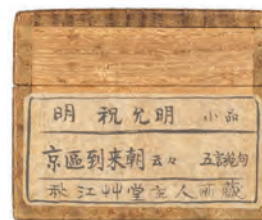 明 祝允明 小品
京區到来朝 云々 五言絶句
秋江艸堂主人所藏